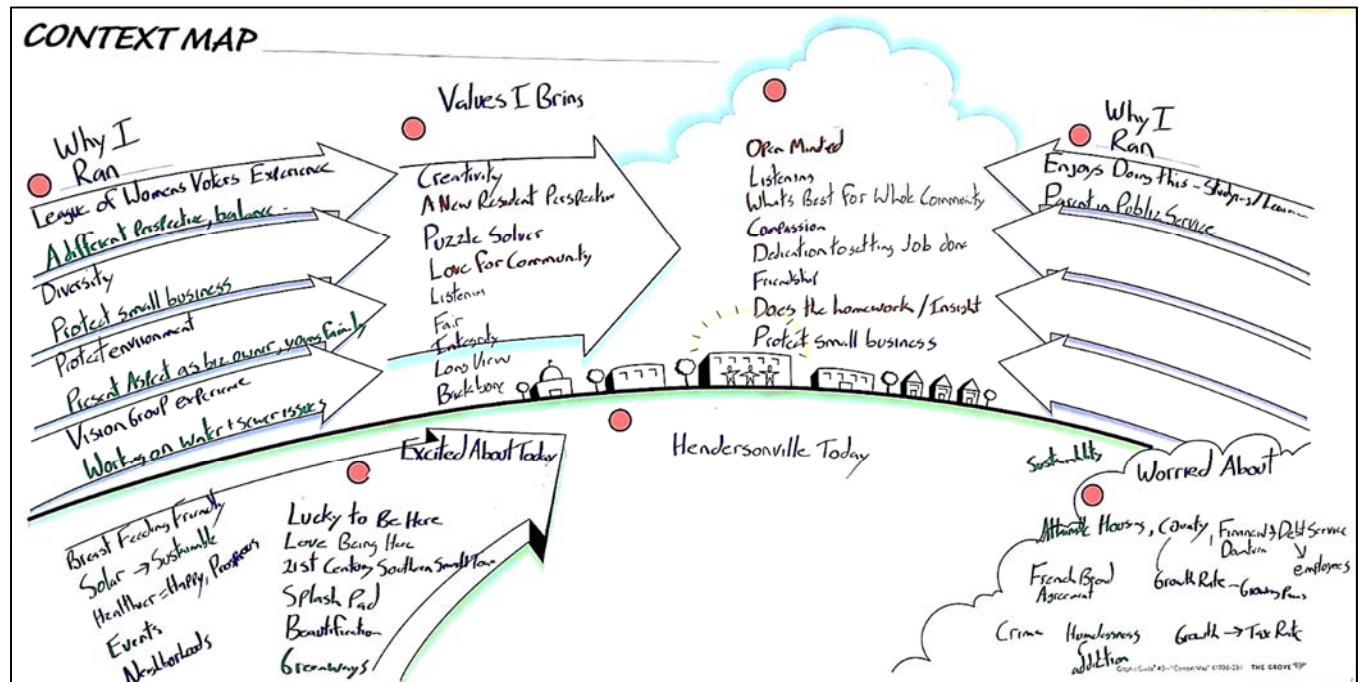 CONTEXT MAP
Why I
Ran
League of Womens Voters Experience
A different Perspective, balance
Diversity
Protect small business
Protect environment
Present Aspect as biz owner, young family
Vision Group experience
Working on water + sewer issues
Values I Bring
Creativity
A New Resident Perspective
Puzzle Solver
Love For Community
Listening
Fair
Integrity
Long View
Backbone
Open Minded
Listening
What's Best For Whole Community
Compassion
Dedication to getting Job done
Friendship
Does the homework / Insight
Protect small business
Why I
Ran
Enjoys Doing this - Studying/Learning
Parent in Public Service
Excited About Today
Breast Feeding Friendly
Solar → Sustainable
Healthier = Happy, Prosperous
Events
Neighborhoods
Lucky to Be Here
Love Being Here
21st Century Southern Small Town
Splash Pad
Beautification
Greenways
Hendersonville Today
Sustainability
Worried About
Housing, County, Financial → Debt Service
employees
French Broad
Agreement
Growth Rate - Growing Pains
Crime
Homelessness
addiction
Growth → Tax Rate
THE GROVE